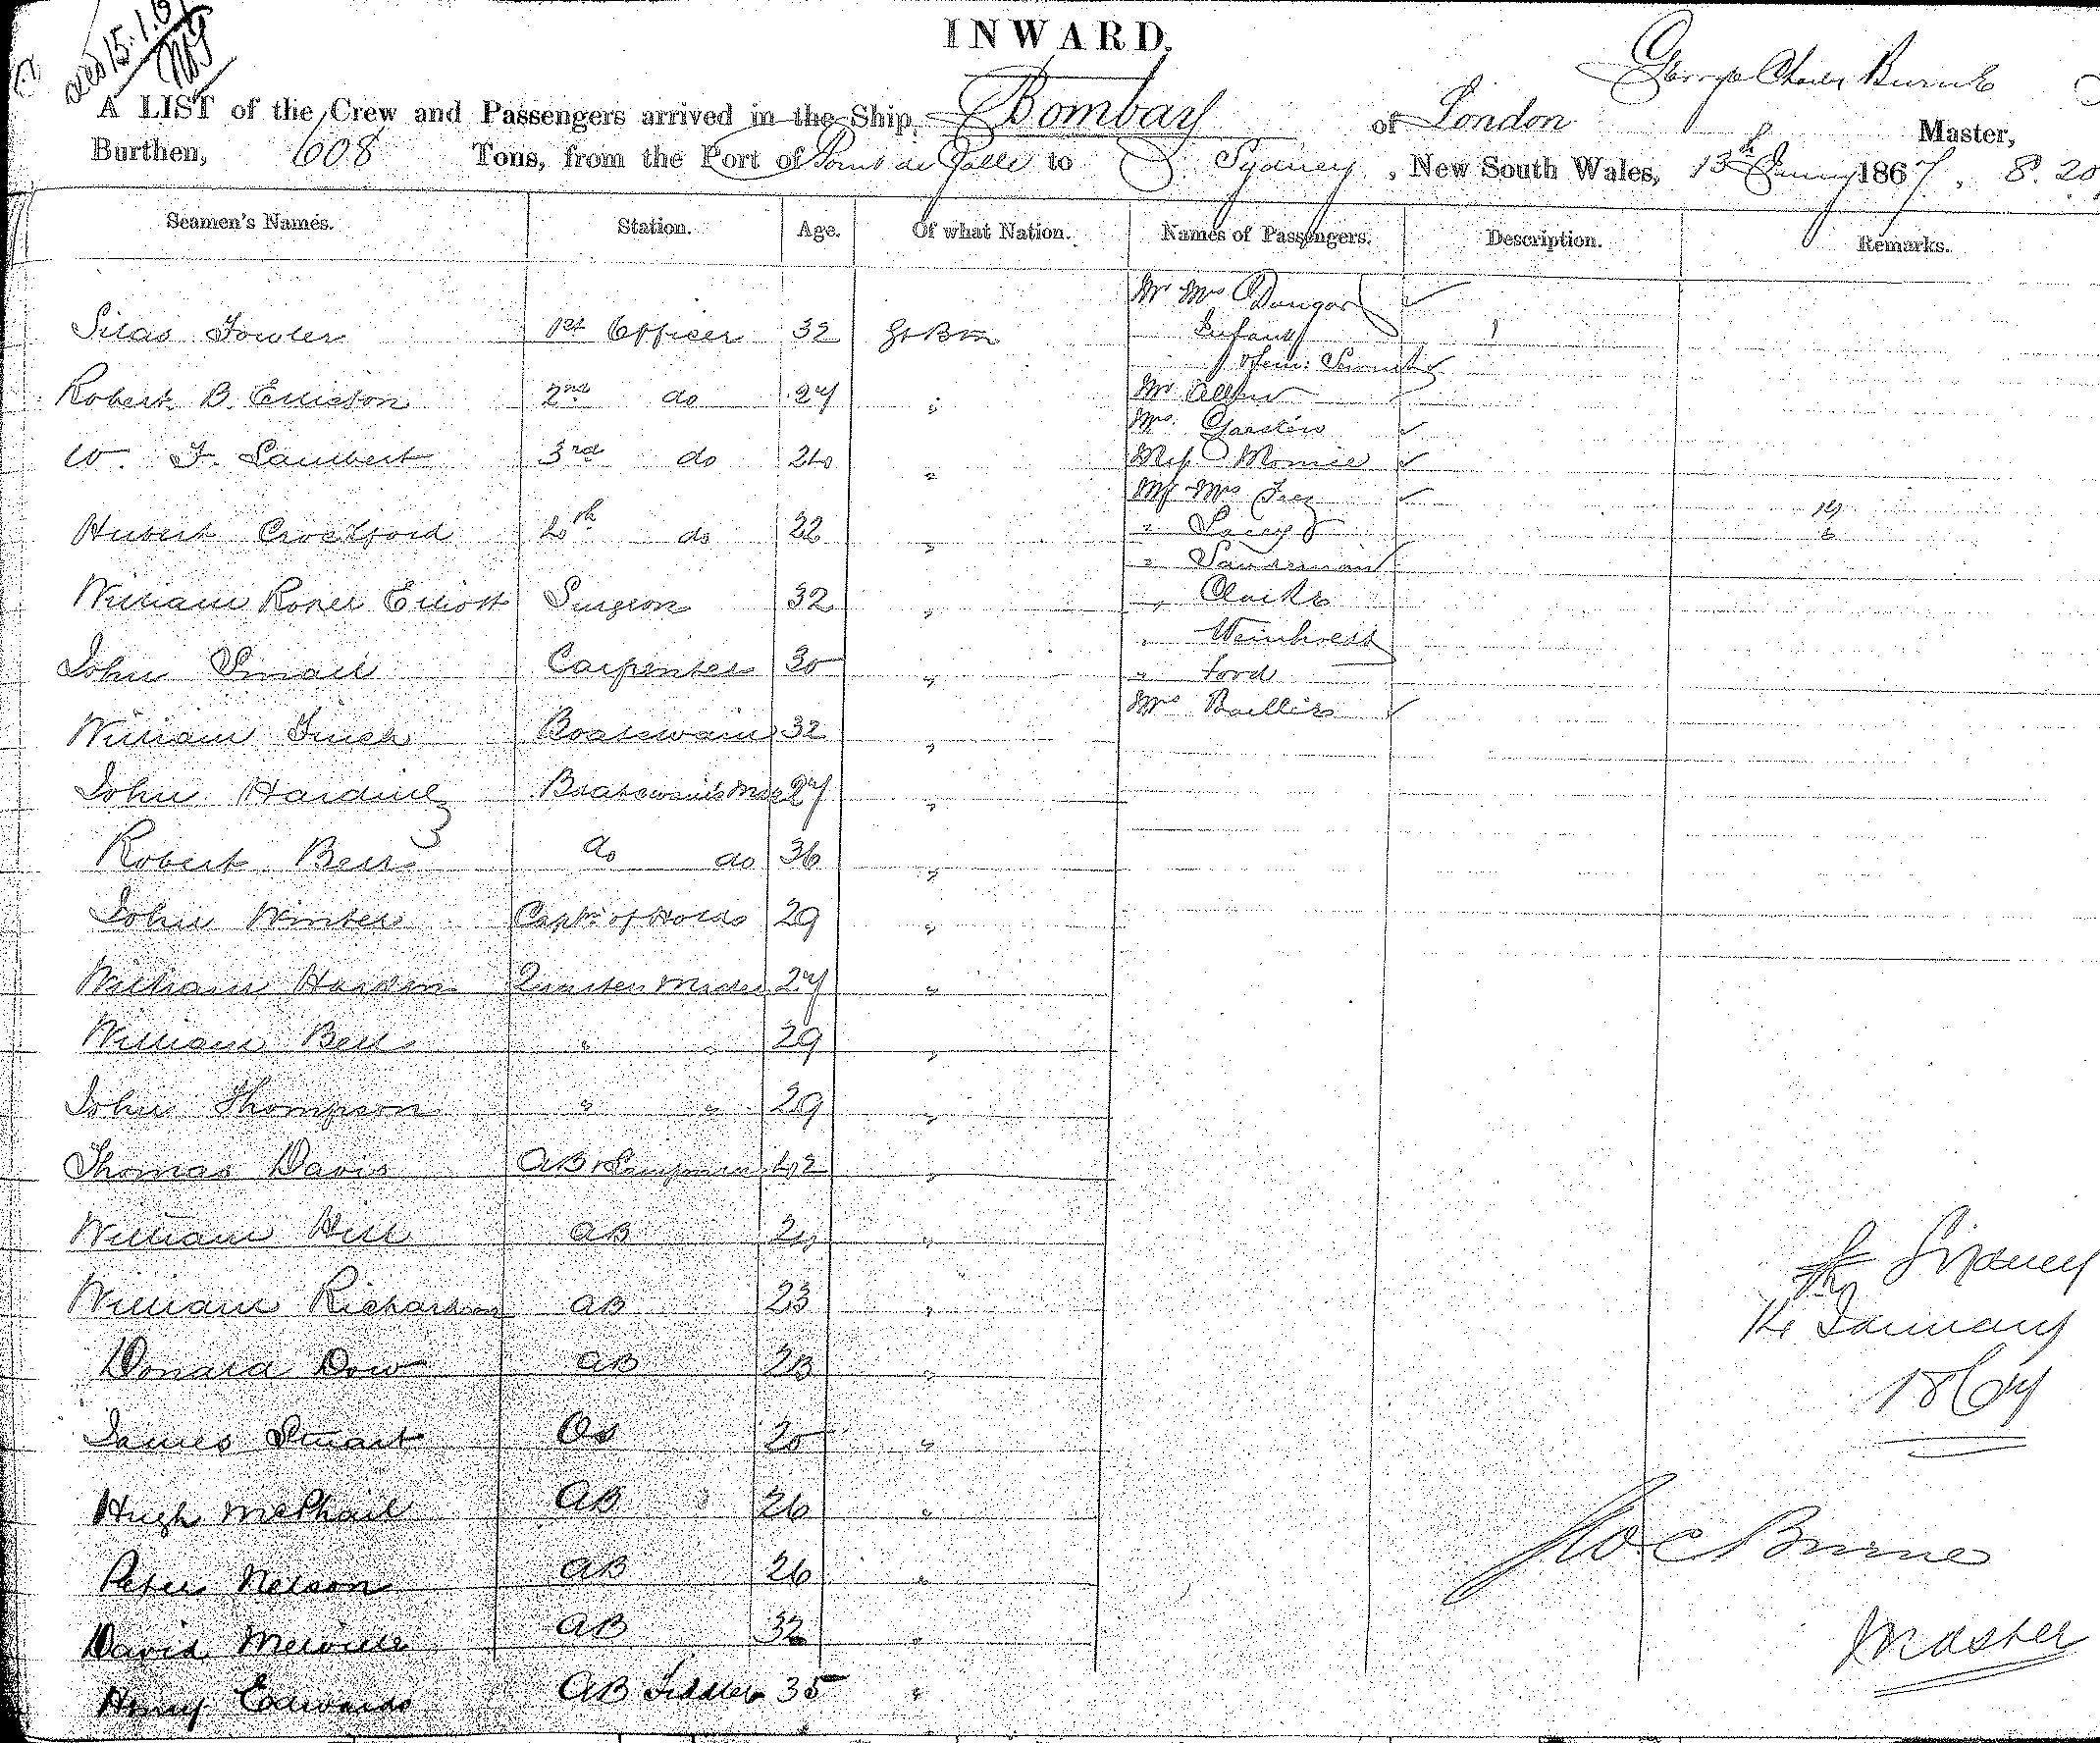 INWARD.
George Charles Burne
A LIST of the Crew and Passengers arrived in the Ship Bombay of London Master,
Burthen, 608 Tons, from the Port of Point de Galle to Sydney, New South Wales, 13th January 1867, 8.20
Seamen's Names. Station. Age. Of what Nation. Names of Passengers. Description. Remarks.
Mr Mrs Dangar
Silas Fowler 1st Officer 32 Gt Btn Infant 1
Robert B. Ellison 2nd do 27 " Mr Allen
Mrs Garstin
W. F. Lambert 3rd do 24 " Miss
Mr Mrs 14
Hubert Crockford 4th do 22 " " Lacey
" Sanderman
William Roper Elliott Surgeon 32 " " Clarke
"
John Smail Carpenter 30 " " Ford
William Finch Boatswain 32 " Mrs Bailliere
John Harding Boatswains Mte 27 "
Robert Bell do do 36 "
John Winter Captn of Holds 29 "
William Quarter Master 27 "
William Bell " " 29 "
John Thompson " " 29 "
Thomas Davis AB & Lamptrimmer 42 "
William Hill AB 24 "
Sydney
William Richardson AB 23 "
14 January
Donald Dow AB 23 "
1867
James Stuart OS 20 "
Hugh McPhail AB 26 "
Geo C Burne
Peter Nelson AB 26 "
David Melville AB 32 "
Master
Henry Edwards AB Fiddler 35 "